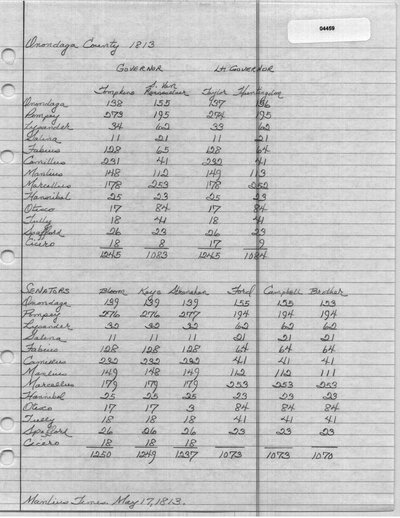 04459
Onondaga County 1813
GOVERNOR LT. GOVERNOR
Tompkins S. Van Rensselaer Taylor Huntington
Onondaga 138 155 137 156
Pompey 273 195 274 195
Lysander 34 62 33 62
Salina 11 21 11 21
Fabius 128 65 128 64
Camillus 231 41 232 41
Manlius 148 112 149 113
Marcellus 178 253 178 252
Hannibal 25 23 25 23
Otisco 17 84 17 84
Tully 18 41 18 41
Spafford 26 23 26 23
Cicero 18 8 17 9
1245 1083 1245 1084
SENATORS Bloom Keyes Stranahan Ford Campbell Brother
Onondaga 139 139 139 155 155 153
Pompey 276 276 277 194 194 194
Lysander 32 32 32 62 62 62
Salina 11 11 11 21 21 21
Fabius 128 128 128 64 64 64
Camillus 232 232 232 41 41 41
Manlius 149 148 149 112 112 111
Marcellus 179 179 179 253 253 253
Hannibal 25 25 25 23 23 23
Otisco 17 17 3 84 84 84
Tully 18 18 18 41 41 41
Spafford 26 26 26 23 23 23
Cicero 18 18 18
1250 1249 1237 1073 1073 1070
Manlius Times. May 17, 1813.